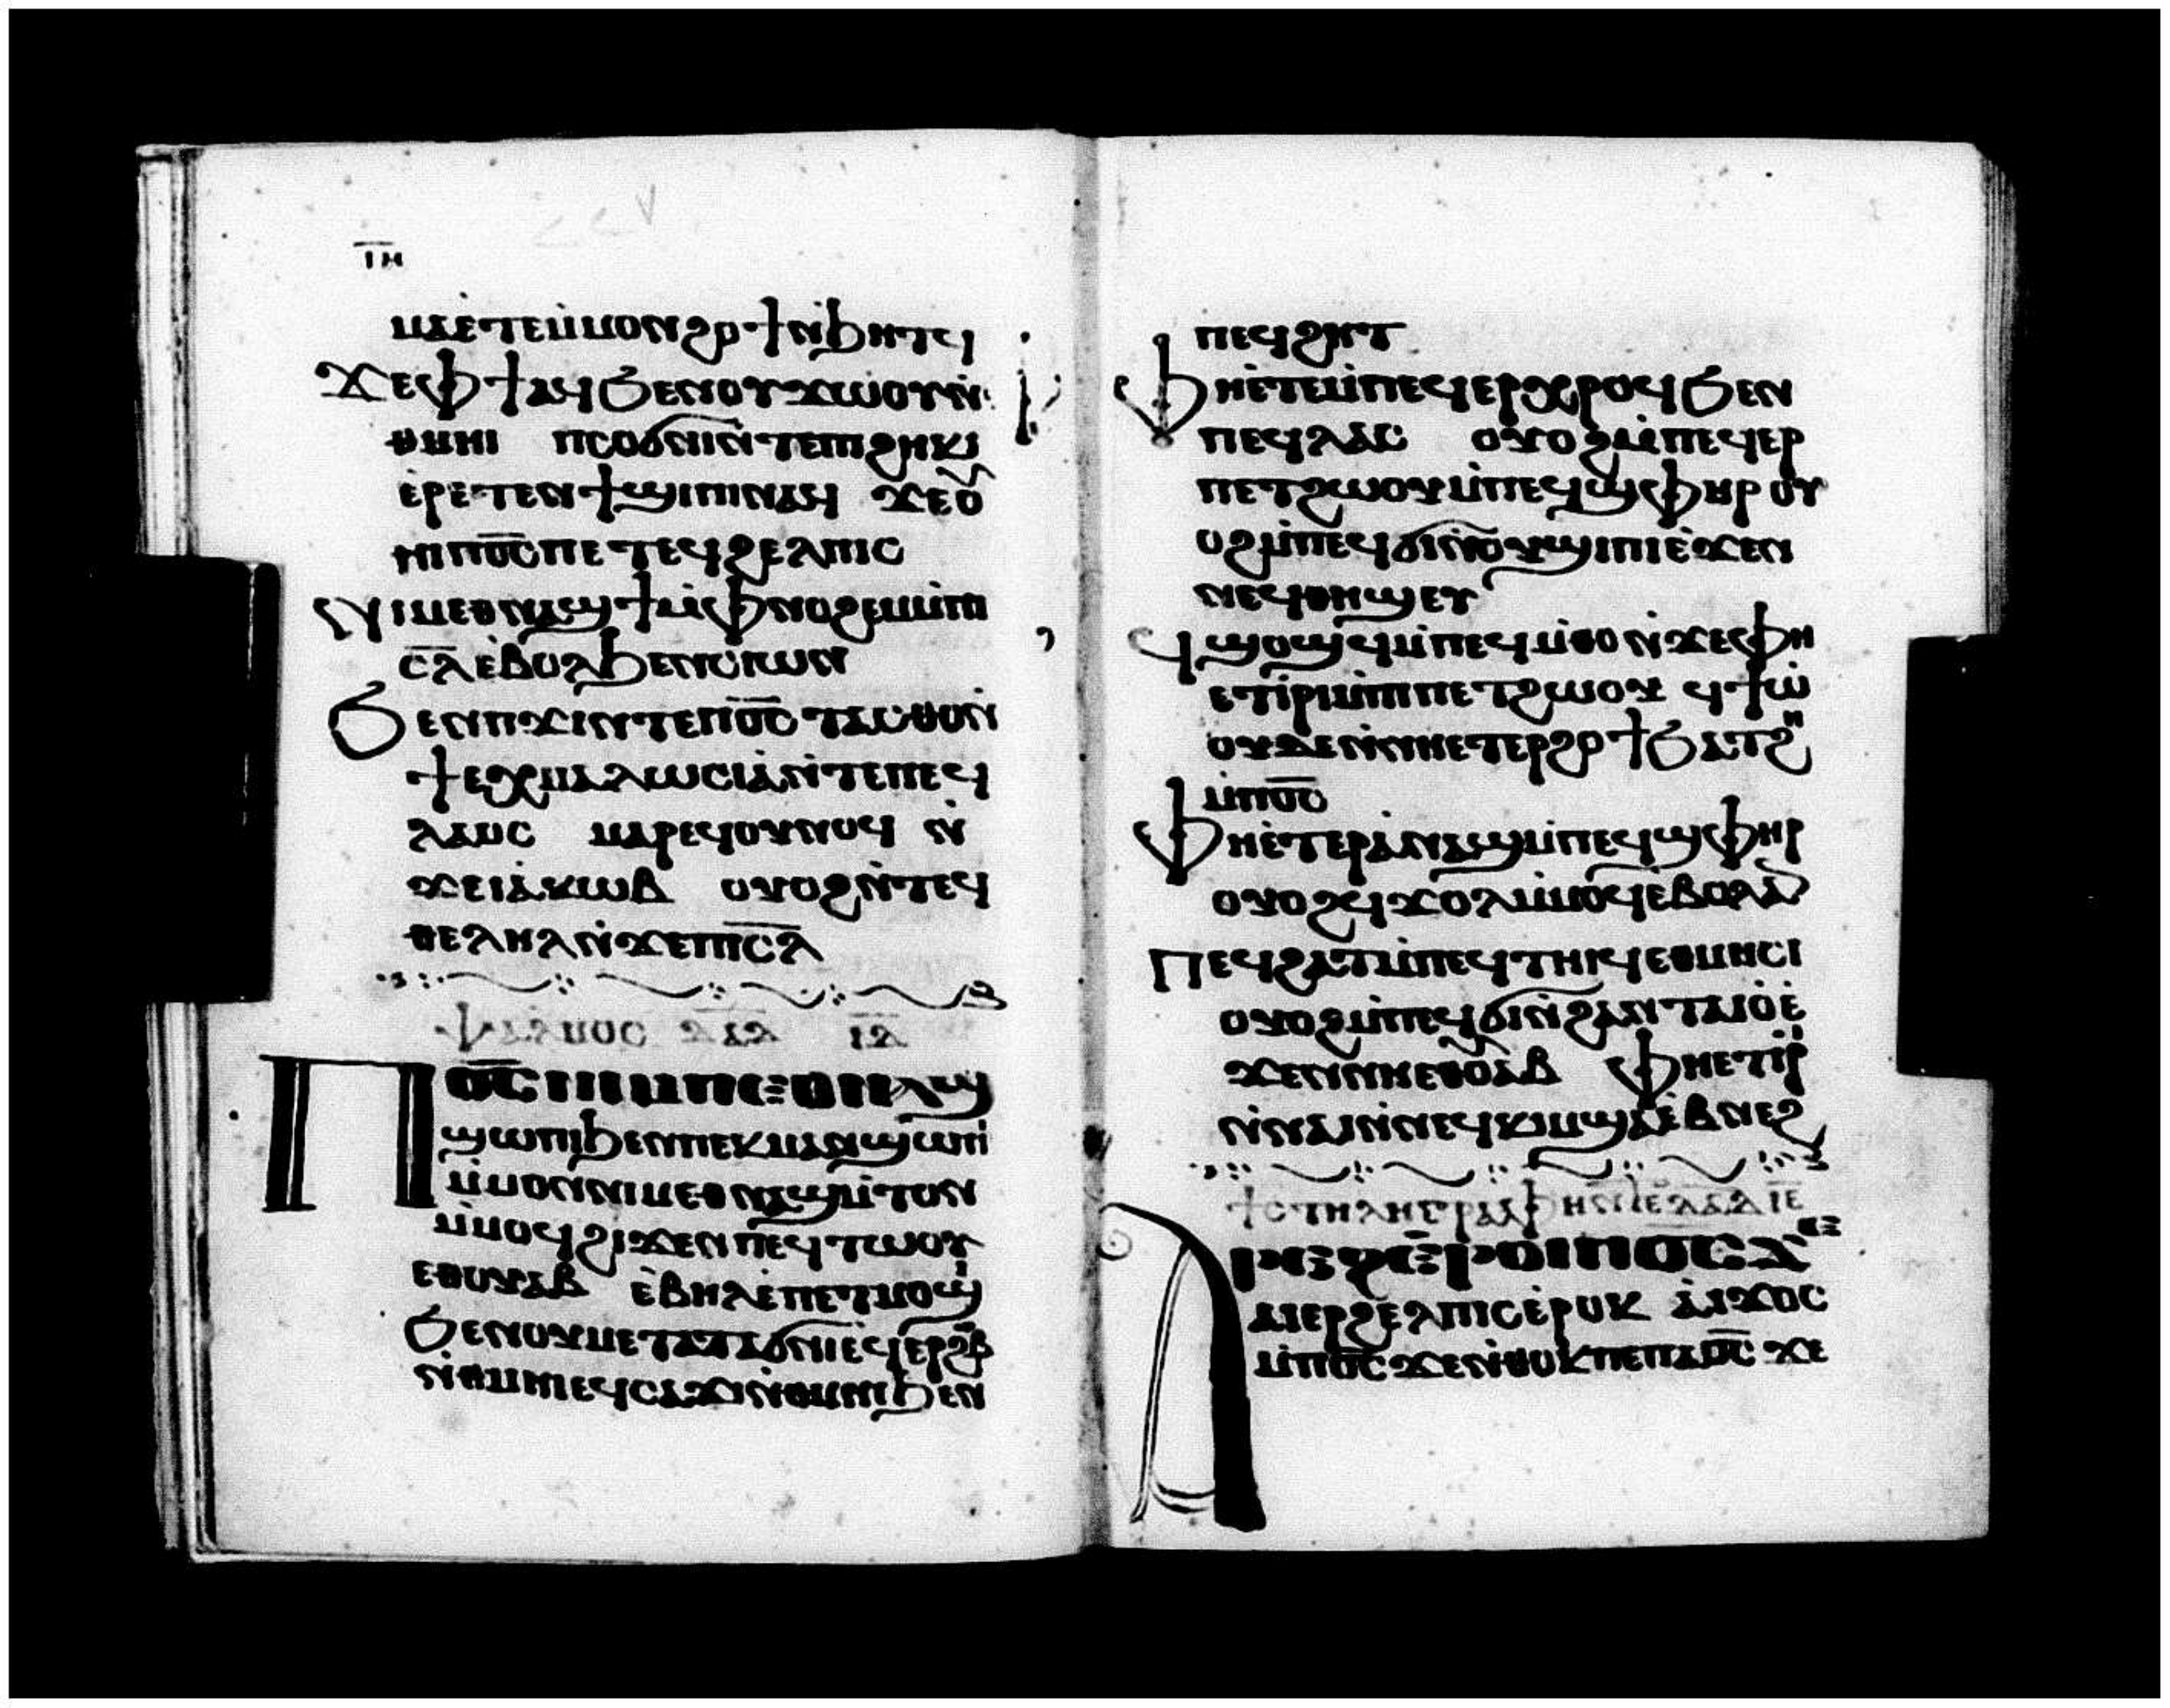 ⲓⲏ
ⲙⲁⲉ̀ⲧⲉⲙ̀ⲙⲟⲛϩⲟϯⲛ̀ϧⲏⲧϥ
ϫⲉⲫϯⲁϥϧⲉⲛⲟⲩϫⲱⲟⲩⲛ̀
ⲑⲙⲏⲓ ⲡⲥⲟϭⲛⲓⲛ̀ⲧⲉⲡⲓϩⲏⲕⲓ
ⲉ̀ⲣⲉⲧⲉⲛϯϣⲓⲡⲓⲛⲁϥ ϫⲉⲟ̀
ⲏⲓⲡⲟ̅ⲥ̅ⲡⲉⲧⲉϥϩⲉⲗⲡⲓⲥ
ⲛⲓⲙⲉⲑⲛⲁϣϯⲙ̀ⲫⲛⲟϩⲉⲙⲙ̀ⲡⲓ
ⲥ̅ⲗ̅ⲉ̀ⲃⲟⲗϧⲉⲛⲥⲓⲱⲛ
ϧⲉⲛⲡϫⲓⲛⲧⲉⲡⲟ̅ⲥ̅ⲧⲁⲥⲑⲟⲛ̀
ϯⲉⲭⲙⲁⲗⲱⲥⲓⲁ̀ⲛ̀ⲧⲉⲡⲉϥ
ⲗⲁⲟⲥ ⲙⲁⲣⲉϥⲟⲩⲛⲟϥ ⲛ̀
ϫⲉⲓⲁⲕⲱⲃ ⲟⲩⲟϩⲛ̀ⲧⲉϥ
ⲑⲉⲗⲏⲗⲛ̀ϫⲉⲡⲓⲥ̅ⲗ̅
ⲯⲁⲗⲙⲟⲥ ⲇⲁⲇ ⲓⲇ
Ⲡⲟ̅ⲥ̅ⲛⲓⲙⲡⲉⲑⲛⲁϣ
ϣⲱⲡⲓϧⲉⲛⲡⲉⲕⲙⲁⲛ̀ϣⲱⲡⲓ
ⲙ̀ⲙⲟⲛⲛⲓⲙⲉⲑⲛⲁϣⲙ̀ⲧⲟⲛ
ⲙ̀ⲙⲟϥϩⲓϫⲉⲛⲡⲉϥⲧⲱⲟⲩ
ⲉⲑⲟⲩⲁⲃ ⲉ̀ⲃⲏⲗⲉ̀ⲡⲉⲧⲙⲟϣⲓ
ϧⲉⲛⲟⲩⲙⲉⲧⲁⲧⲁϭⲛⲓⲉϥⲉⲣϩⲱⲃ
ⲛ̀ⲑⲙⲏⲓⲉϥⲥⲁϫⲓⲛ̀ⲑⲙⲏⲓϧⲉⲛ
ⲡⲉϥϩⲏⲧ
ⲫⲏⲉ̀ⲧⲉⲙ̀ⲡⲉϥⲉⲣⲭⲣⲟϥϧⲉⲛ
ⲡⲉϥⲗⲁⲥ ⲟⲩⲟϩⲙ̀ⲡⲉϥⲉⲣ
ⲡⲉⲧϩⲱⲟⲩⲙ̀ⲡⲉϥϣⲫⲏⲣ ⲟⲩ
ⲟϩⲙ̀ⲡⲉϥϭⲓⲛ̀ⲟⲩϣⲓⲡⲓⲉ̀ϫⲉⲛ
ⲛⲉϥⲑⲏϣⲉⲩ
ϥϣⲟϣϥⲙ̀ⲡⲉϥⲙ̀ⲑⲟⲛ̀ϫⲉⲫⲏ
ⲉⲧⲓ̀ⲣⲓⲙ̀ⲡⲓⲡⲉⲧϩⲱⲟⲩ ϥϯⲱ̀
ⲟⲩⲇⲉⲛ̀ⲛⲏⲉⲧⲉⲣϩⲟϯϧⲁⲧϩⲏ
ⲙ̀ⲡⲟ̅ⲥ̅
ⲫⲏⲉ̀ⲧⲉⲣⲁ̀ⲛⲁϣⲙ̀ⲡⲉϥϣⲫⲏⲣ
ⲟⲩⲟϩϥϫⲟⲗⲙ̀ⲙⲟϥⲉ̀ⲃⲟⲗⲁⲛ
ⲡⲉϥϩⲁⲧⲙ̀ⲡⲉϥⲧⲏⲓϥⲉⲑⲙⲏⲥⲓ
ⲟⲩⲟϩⲙ̀ⲡⲉϥϭⲓⲛ̀ϩⲁⲛⲧⲁⲓⲟⲉ̀
ϫⲉⲛⲛⲏⲉⲑⲟⲩⲁⲃ ⲫⲏⲉⲧⲓⲣⲓ
ⲛ̀ⲛⲁⲓⲛ̀ⲛⲉϥⲕⲓⲙϣⲁⲉ̀ⲃⲛⲉϩ
ϯⲥⲧⲏⲗⲏⲅⲣⲁⲫⲏⲛ̀ⲧⲉⲇⲁⲇ ⲓⲉ
Ⲁⲣⲉϩⲉ̀ⲣⲟⲓⲡⲟ̅ⲥ̅ϫⲉ
ⲁⲓⲉⲣϩⲉⲗⲡⲓⲥⲉ̀ⲣⲟⲕ ⲁⲓϫⲟⲥ
ⲙ̀ⲡⲟ̅ⲥ̅ϫⲉⲛ̀ⲑⲟⲕⲡⲉⲡⲁⲟ̅ⲥ̅ ϫⲉ